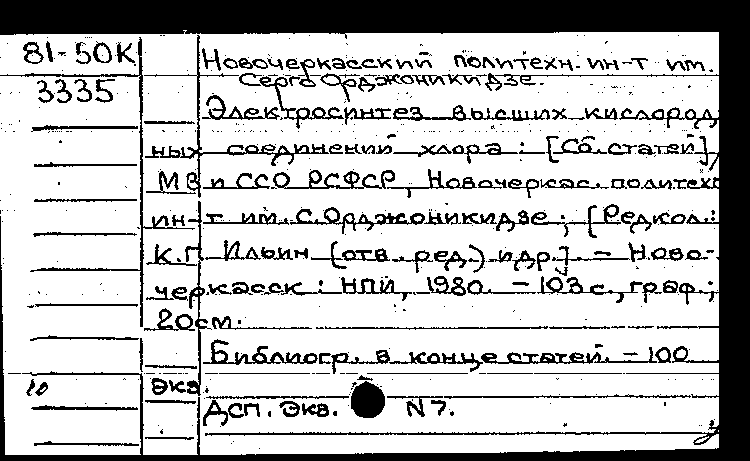 81-50К
3335
Новочеркасский политехн. ин-т им.
Серго Орджоникидзе.
Электросинтез высших кислород
ных соединений хлора : [Сб. статей] /
МВ и ССО РСФСР, Новочеркас. политехн
ин-т им. С. Орджоникидзе ; [Редкол.:
К.П Ильин (отв. ред.) и др.]. – Ново-
черкасск : НПИ, 1980. – 103 с., граф.;
20 см.
Библиогр. в конце статей. – 100
10 экз.
ДСП. Экз. N 7.